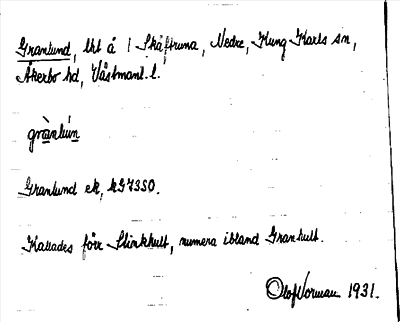 Granlund, lht å 1 Skäftruna, Nedre, Kung Karls sn,
Åkerbo hd, Västmanl. l.
grànlún
Granlund ek, kG7350.
Kallades förr Stinkhult, numera ibland Granhult.
Olof Norman 1931.